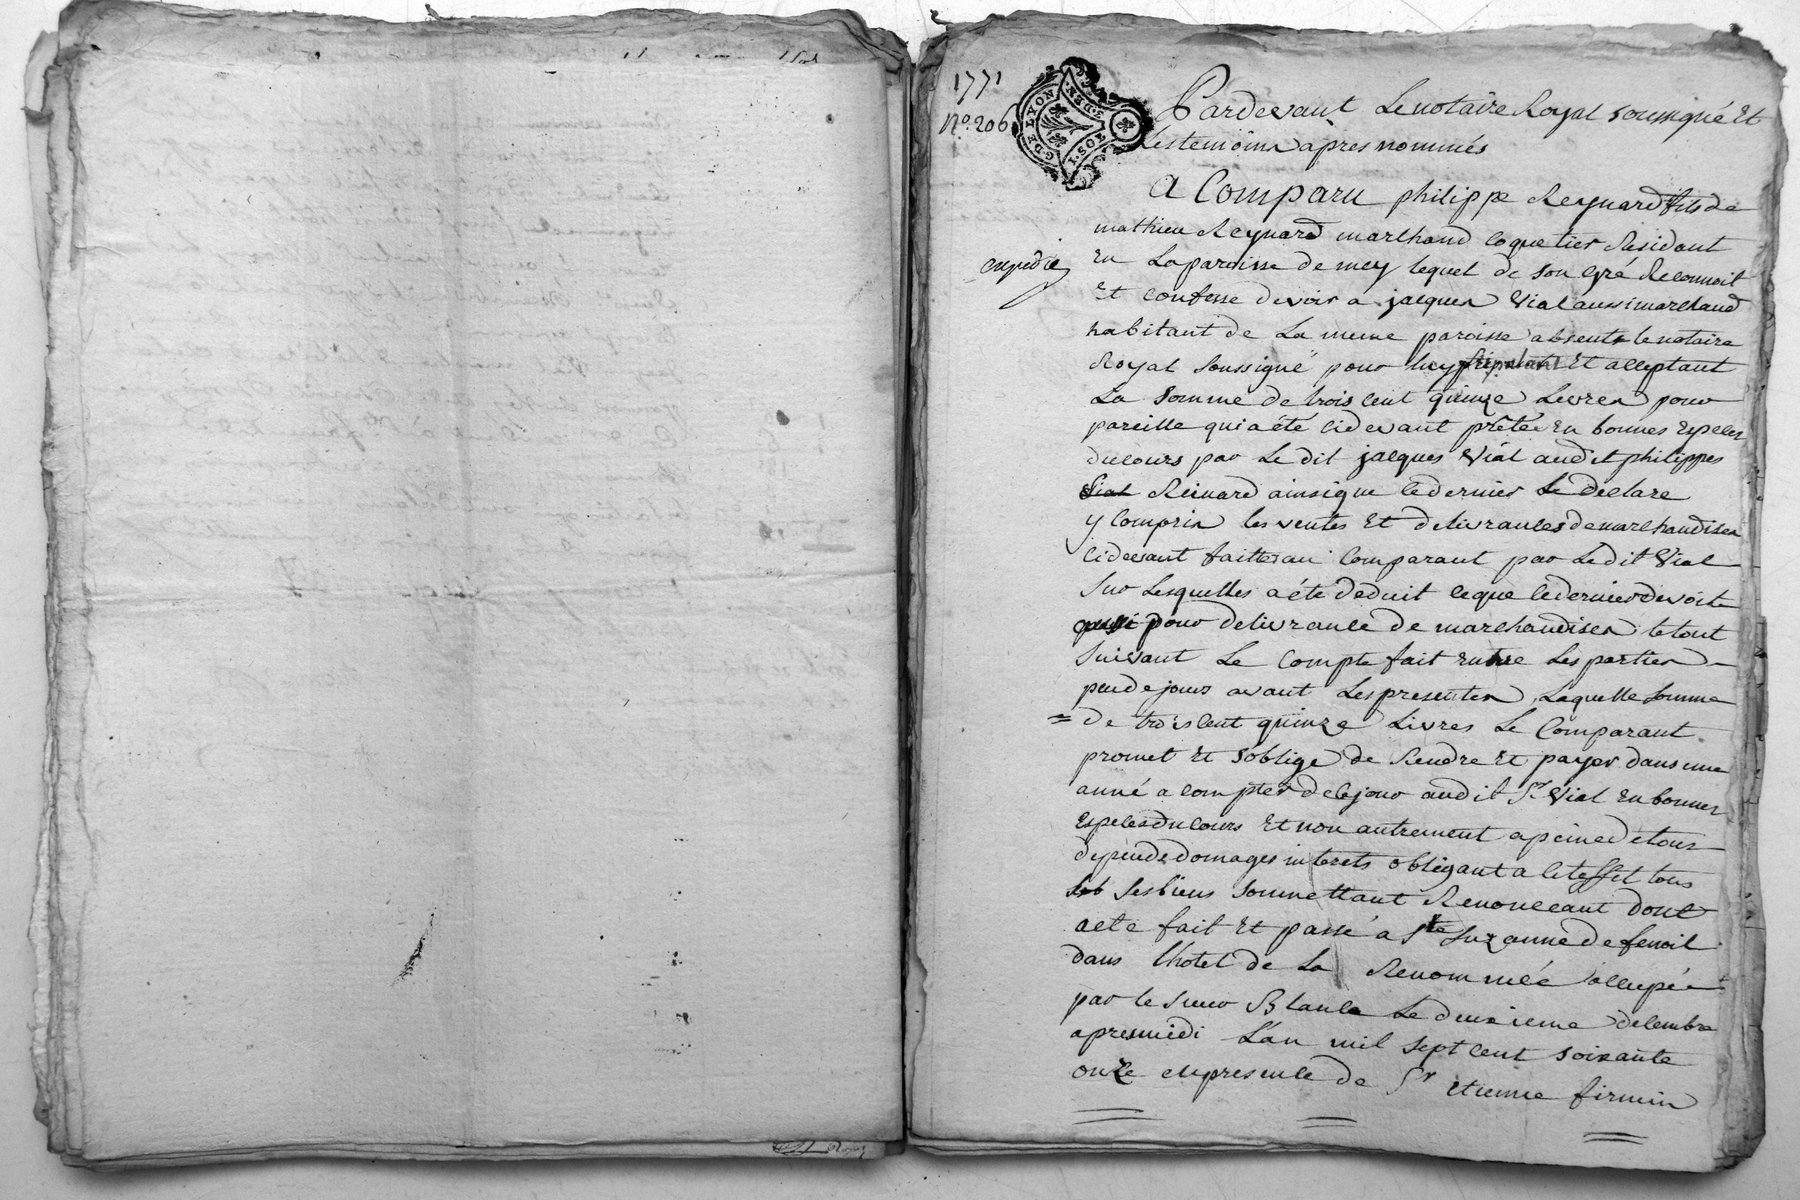 1771
N° 206
G. DE LYON
I. SOL
3. DEN.
Pardevant Lenotaire Royal soussigné Et
Lestemoins apres nommés
A Comparu philippe Reynard fils de
mathieu Reynard marchand coquetier Residant
En Laparoisse de mey lequel de son gré Reconnoit
expedié
Et confesse devoir a jacques Vial aussi marchand
habitant de La meme paroisse absent le notaire
Royal soussigné pour luy stipulant Et acceptant
La somme de trois cent quinze Livres pour
pareille qui a été cidevant prétée En bonnes Especes
du cours par Le dit jacques Vial audit philippes
Vial Reinard ainsique ledernier Le declare
y compris les ventes Et delivrances de marchandises
cidevant faittes au Comparant par Ledit Vial
sur Lesquelles a été deduit ceque ledernier devoit
aussi pour delivrance de marchandises le tout
suivant Le compte fait Entre Les parties
peu de jours avant Les presentes, Laquelle somme
= de trois cent quinze Livres Le Comparant
promet Et soblige de Rendre Et payer dans une
anné a compter de cejour audit Sr Vial En bonnes
Especes du cours Et non autrement a peine de tous
depends domages interets obligeant a cet effet tous
ses biens soumettant Renonceant dont
acte fait Et passé a Ste Suzanne de fenoil
dans lhotel de La Renommée occupée
par le sieur Blanc Le deuxieme decembre
apresmidi L'an mil sept cent soixante
onze En presence de Sr Etienne firmin